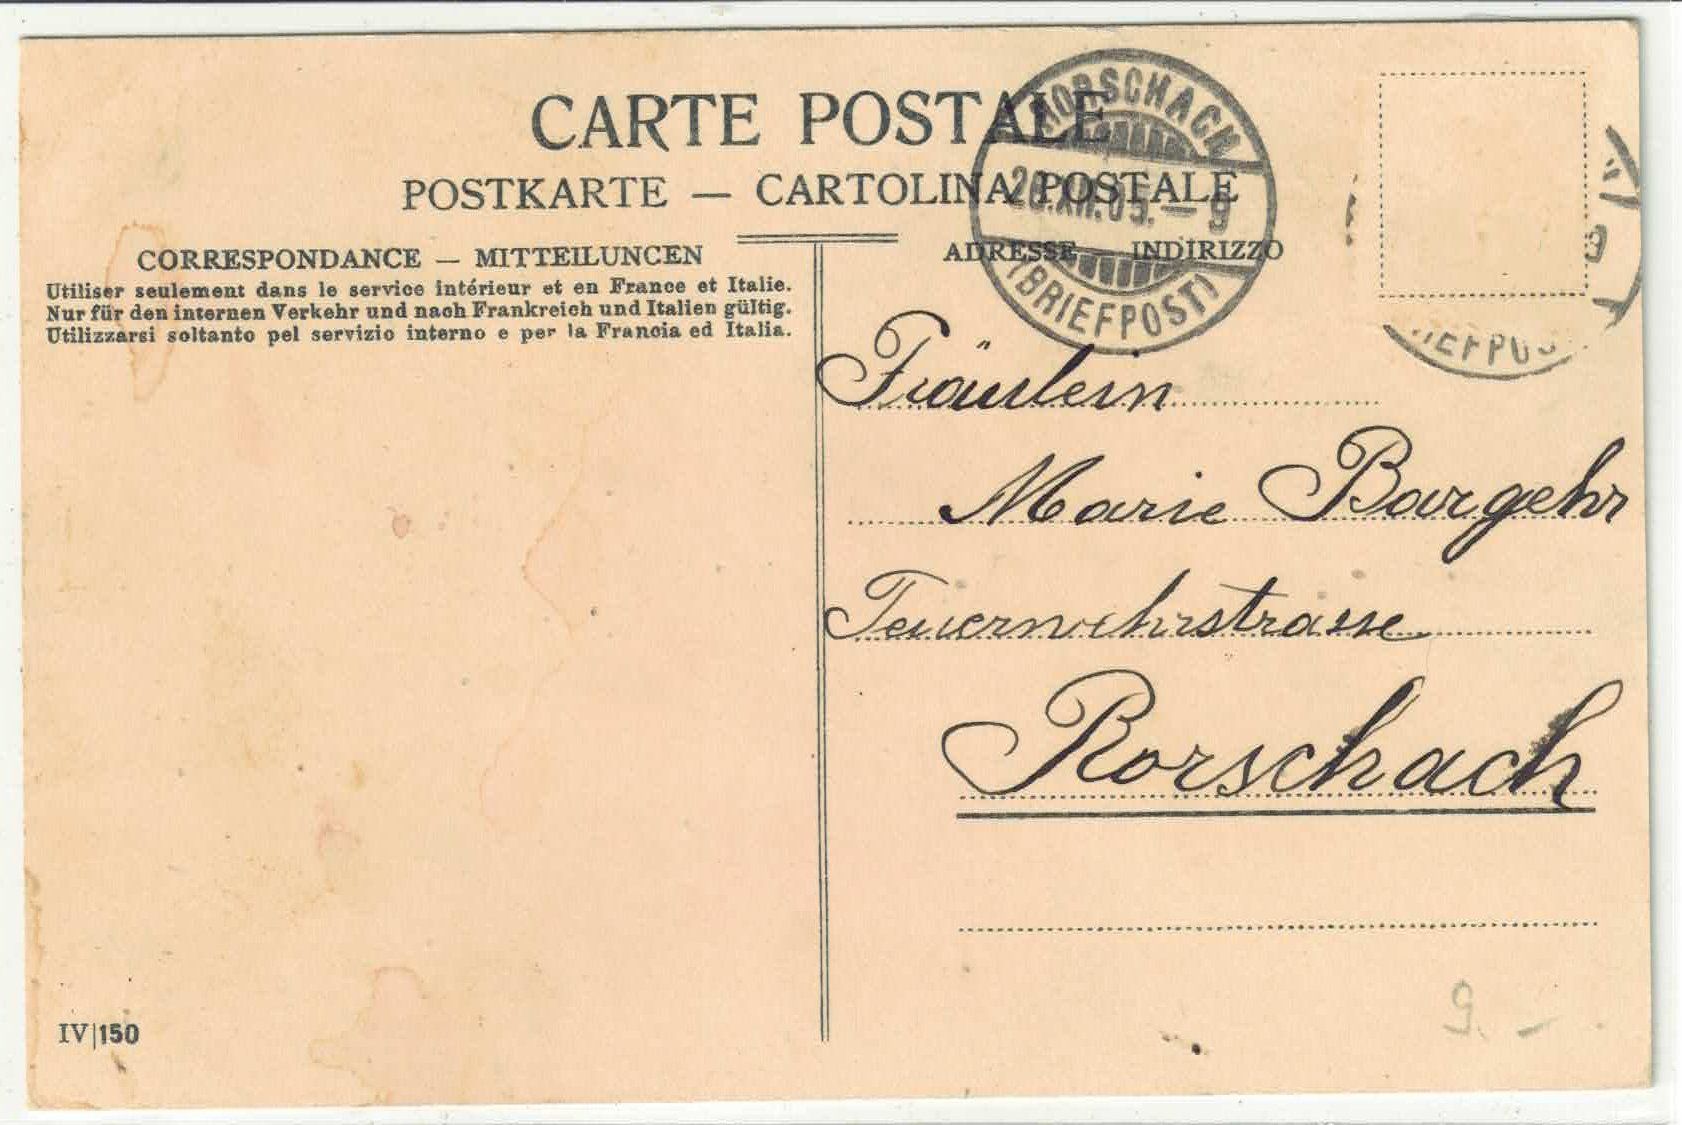 CARTE POSTALE
POSTKARTE — CARTOLINA POSTALE
CORRESPONDANCE — MITTEILUNCEN
Utiliser seulement dans le service intérieur et en France et Italie.
Nur für den internen Verkehr und nach Frankreich und Italien gültig.
Utilizzarsi soltanto pel servizio interno e per la Francia ed Italia.
ADRESSE INDIRIZZO
RORSCHACH
XII.05.—9
(BRIEFPOST)
Fräulein
Marie Bargehr
Feuerwehrstrasse
Rorschach
IV|150
9.—